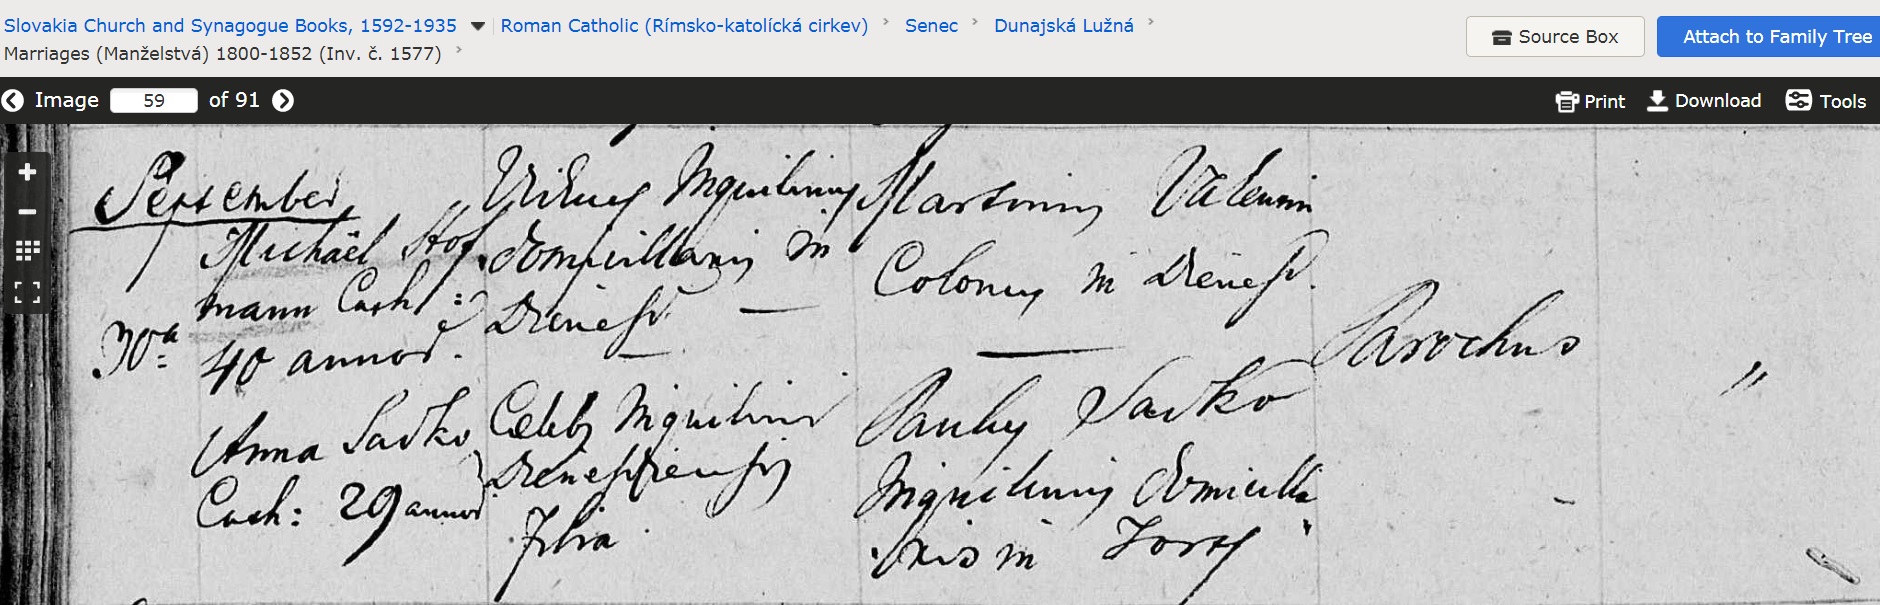 Slovakia Church and Synagogue Books, 1592-1935 Roman Catholic (Rímsko-katolícká cirkev) Senec Dunajská Lužná
Marriages (Manželstvá) 1800-1852 (Inv. č. 1577)
Source Box
Attach to Family Tree
Image 59 of 91
Print Download Tools
September
30a
Michaël Hof
mann Cath:
40 annor.
Anna Sadko
Cath: 29 annor
Viduus Inquilinus
domicillans in
Dienesd.
Celebs Inquilini
Filia
Martinus Valentin
Colonus in Dienesd.
Paulus Sadko
Inquilinus domicilla
in
Parochus
"